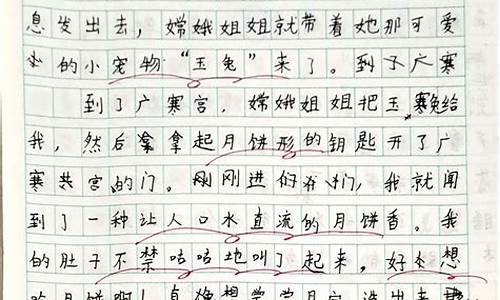 息发出去，嫦娥姐姐就带着她那可爱
的小宠物“玉兔”来了。到了广寒
到了广寒宫，嫦娥姐姐把玉兔给
我，然后拿起月饼形的钥匙开了广
寒宫的门。刚刚进们，我就闻
到了一种让人口水直流的月饼香。我
的肚子不禁咕咕地叫了起来，好想